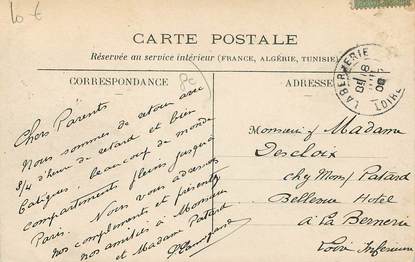 10 €
CARTE POSTALE
Réservée au service intérieur (FRANCE, ALGÉRIE, TUNISIE)
CORRESPONDANCE
ADRESSE
LA BERNERIE
LOIRE
Chers Parents
Nous sommes de retour avec
3/4 d'heure de retard et bien
fatigués, beaucoup de monde
compartiments pleins jusqu'à
Paris. Nous vous adressons
nos compliments et présentez
nos amitiés à Monsieur
et Madame Patard
Monsieur & Madame
Descloix
chez Mons/ Patard
Bellevue Hotel
à La Bernerie
Loire Inférieure